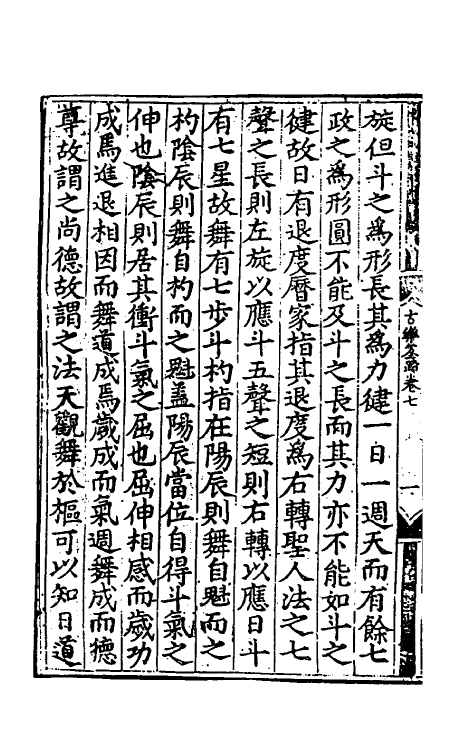 旋但斗之爲形長其爲力健一日一週天而有餘七
政之爲形圓不能及斗之長而其力亦不能如斗之
健故日有退度曆家指其退度爲右轉聖人法之七
聲之長則左旋以應斗五聲之短則右轉以應日斗
有七星故舞有七步斗杓指在陽辰則舞自魁而之
杓陰辰則舞自杓而之魁盖陽辰當位自得斗氣之
伸也陰辰則居其衝斗氣之屈也屈伸相感而歲功
成焉進退相因而舞道成焉歲成而氣週舞成而德
尊故謂之尚德故謂之法天觀舞於樞可以知日道
古樂筌蹄卷七
一